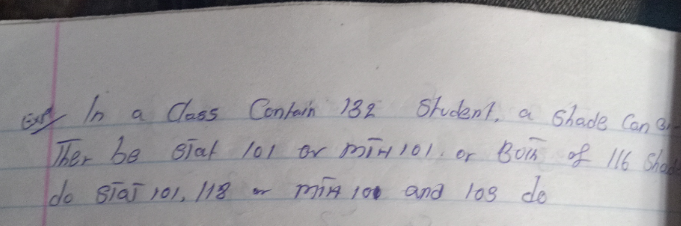 Exs/ In a Class Contain 132 Student, a Shade Can ei-
Ther be Stat 101 or MTH 101. or Both of 116 Shad
do STAT 101, 118 or MTH 101 and 108 do